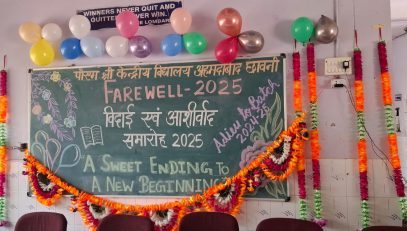 WINNERS NEVER QUIT AND
QUITTERS NEVER WIN.
VINCE LOMBARDI
पीएम श्री केन्द्रीय विद्यालय अहमदाबाद छावनी
FAREWELL-2025
विदाई एवं आशीर्वाद
समारोह 2025
Adieu to Batch
2024-25
A SWEET ENDING TO
A NEW BEGINNING